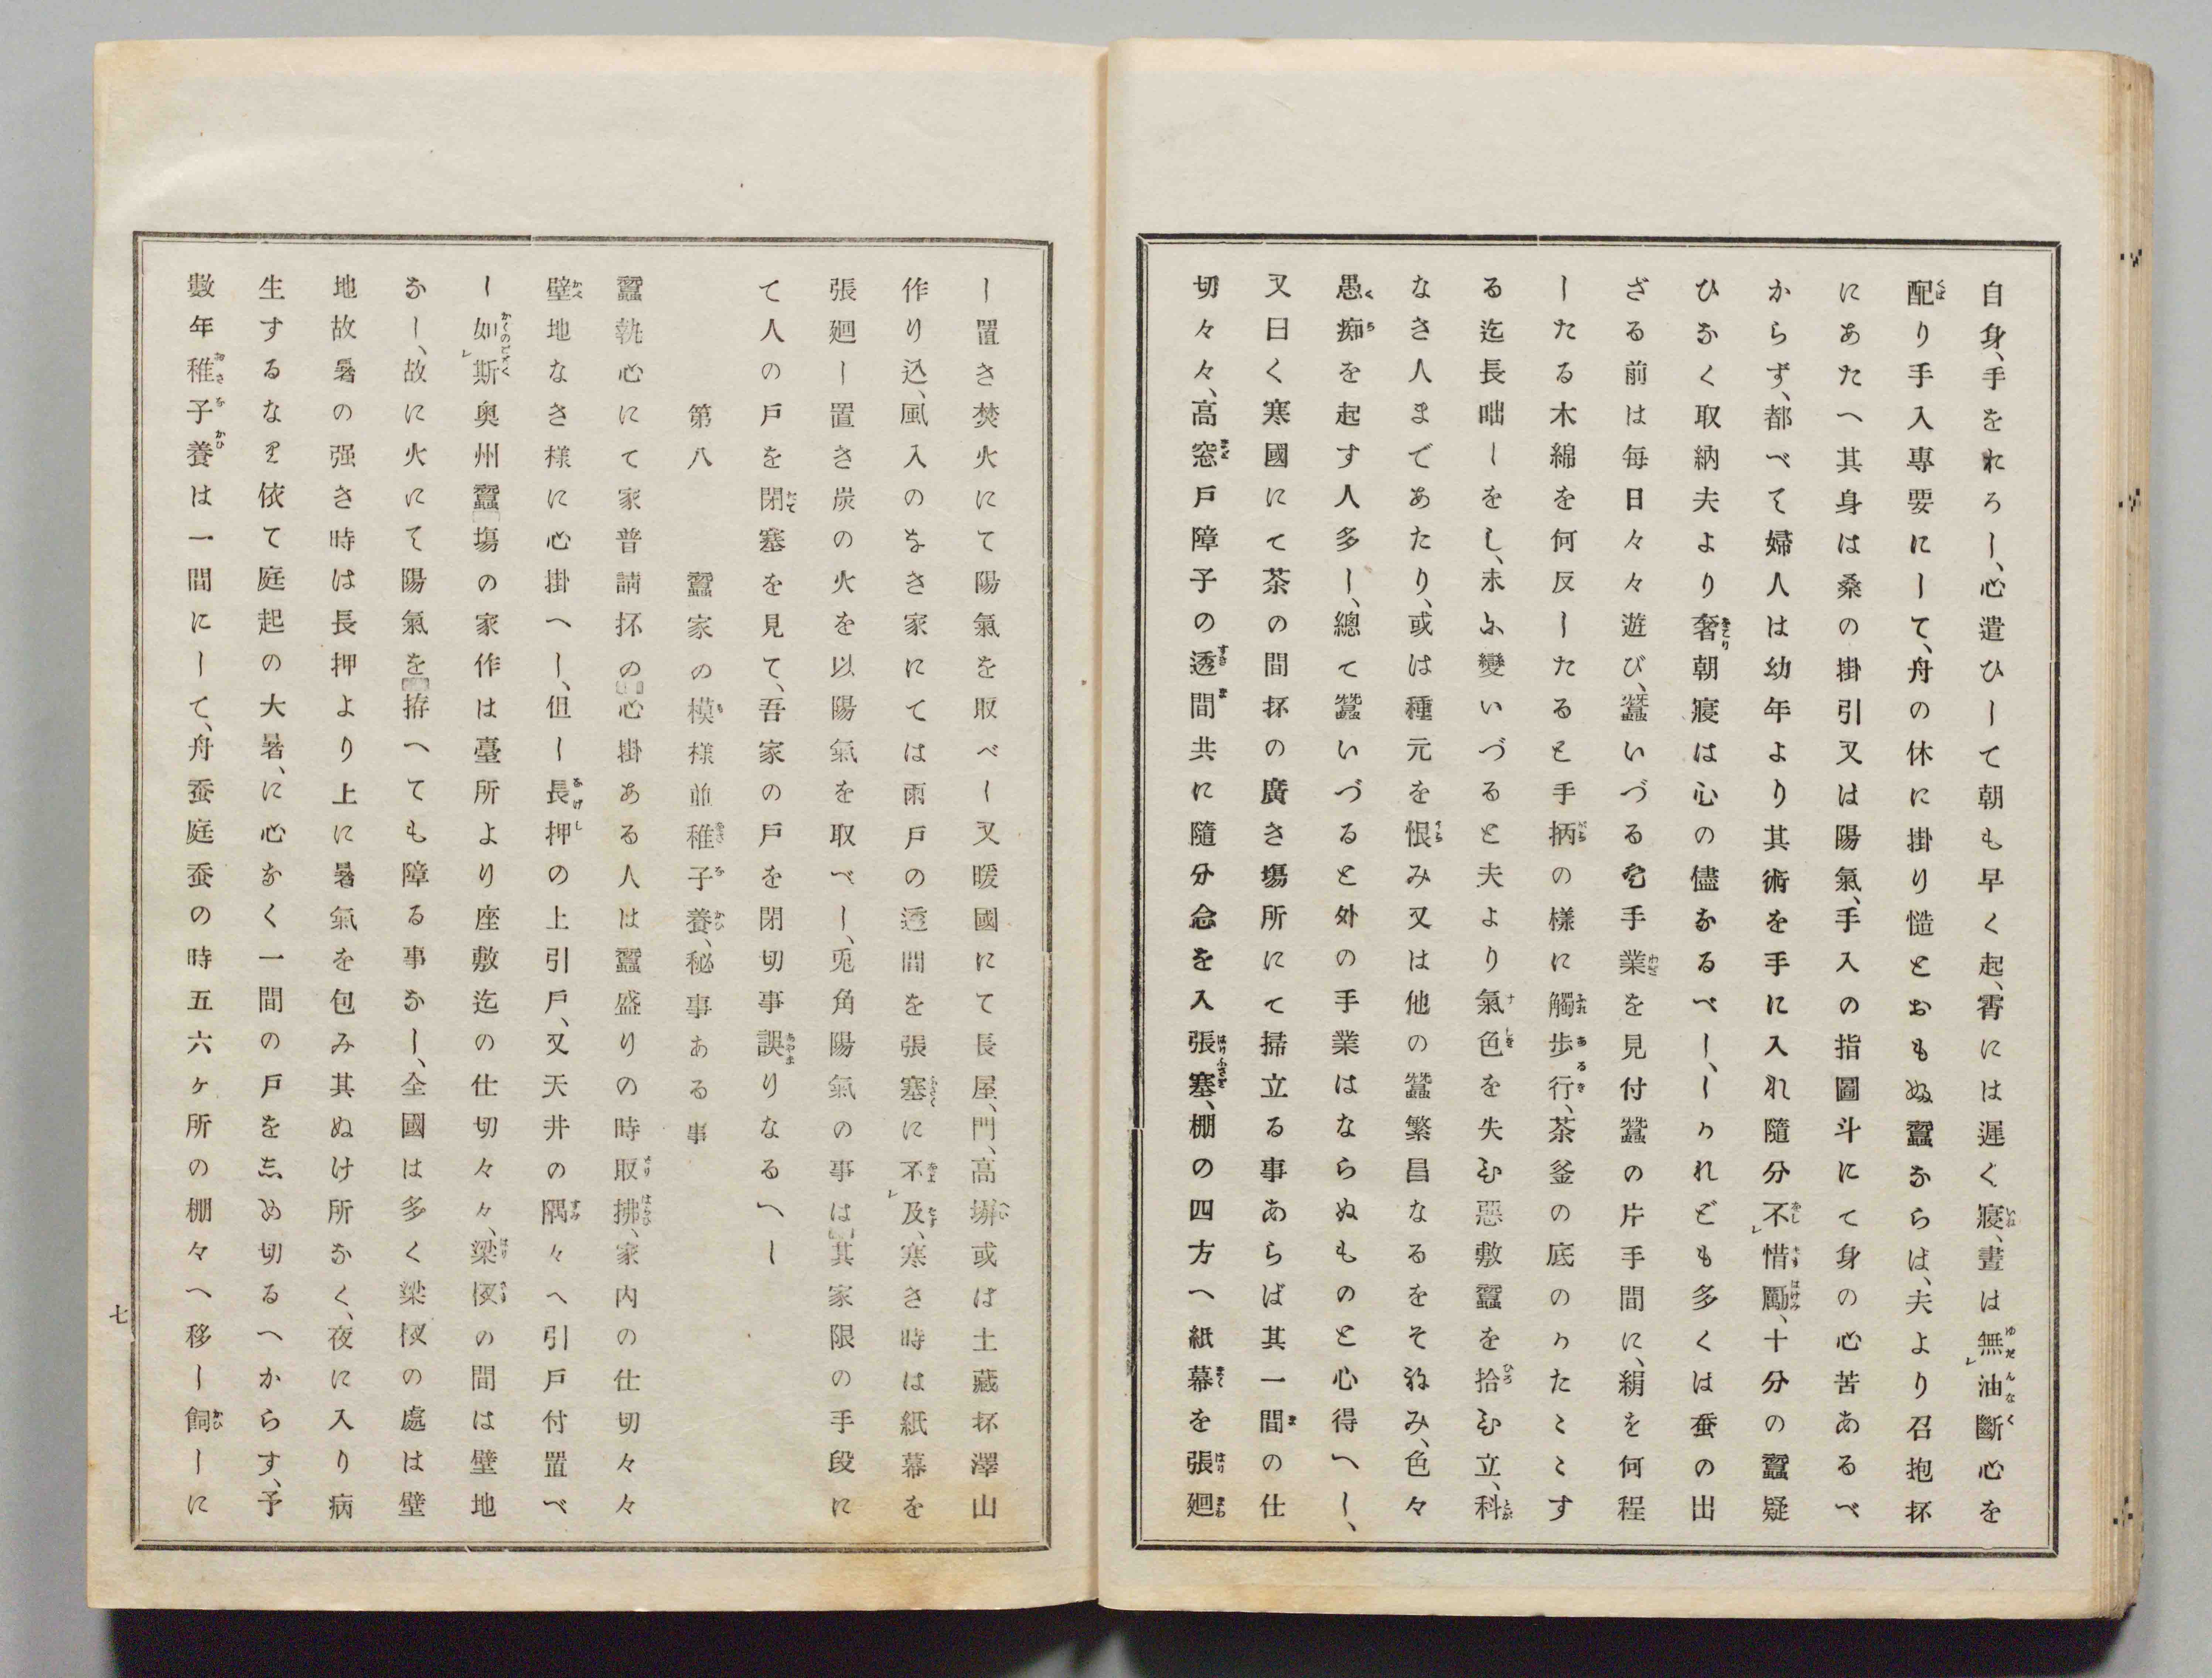 自身、手をれろし、心遣ひして朝も早く起、宵には遅く寢、晝は無油斷心を
配り手入専要にして、舟の休に掛り慥とおもぬ蠶ならは、夫より召抱抔
にあたへ其身は桑の掛引又は陽氣、手入の指圖斗にて身の心苦あるべ
からず、都べて婦人は幼年より其術を手に入れ隨分不惜勵、十分の蠶疑
ひなく取納夫より奢朝寢は心の儘なるべし、しかれども多くは蚕の出
ざる前は毎日々々遊び、蠶いづるを手業を見付蠶の片手間に、絹を何程
したる木綿を何反したると手柄の様に觸歩行、茶釜の底のかたこゝす
る迄長咄しをし、末ふ變いづると夫より氣色を失ひ惡敷蠶を拾ひ立、科
なき人まであたり、或は種元を恨み又は他の蠶繁昌なるをそねみ、色々
愚痴を起す人多し、總て蠶いづると外の手業はならぬものと心得へし、
又曰く寒國にて茶の間抔の廣き塲所にて掃立る事あらば其一間の仕
切々々、高窓戸障子の透間共に隨分念を入張塞、棚の四方へ紙幕を張廻
し置き焚火にて陽氣を取べし又暖國にて長屋、門、高塀或は土藏抔澤山
作り込、風入のなき家にては雨戸の透間を張塞に不及、寒き時は紙幕を
張廻し置き炭の火を以陽氣を取べし、兎角陽氣の事は其家限の手段に
て人の戸を閉塞を見て、吾家の戸を閉切事誤りなるへし
第八　蠶家の模様並稚子養、秘事ある事
蠶執心にて家普請抔の心掛ある人は蠶盛りの時取拂、家内の仕切々々
壁地なき様に心掛へし、但し長押の上引戸、又天井の隅々へ引戸付置べ
し如斯奥州蠶塲の家作は臺所より座敷迄の仕切々々、梁桁の間は壁地
なし、故に火にて陽氣を拵へても障る事なし、全國は多く梁桁の處は壁
地故暑の强き時は長押より上に暑氣を包み其ぬけ所なく、夜に入り病
生するなり依て庭起の大暑、に心なく一間の戸を志め切るへからす、予
數年稚子養は一間にして、舟蚕庭蚕の時五六ヶ所の棚々へ移し飼しに
七